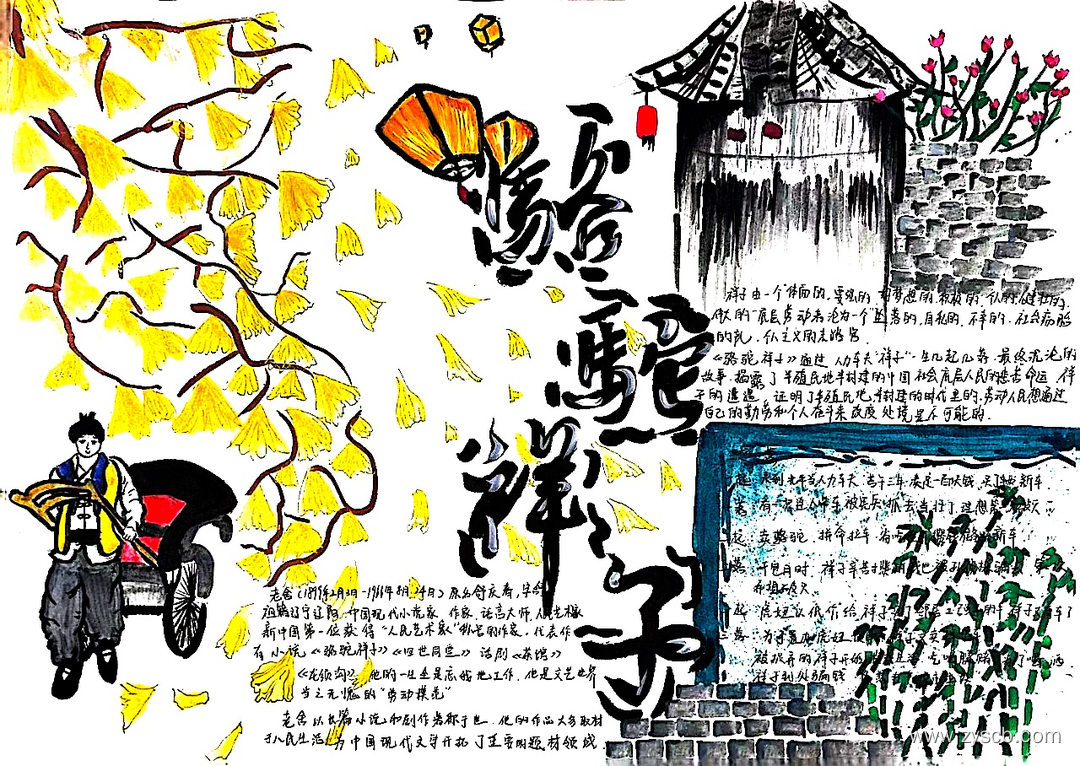 骆驼祥子
祥子由一个体面的、要强的、有梦想的、利己的、个人的、健壮的、
伟大的"底层劳动者沦为一个"堕落的、自私的、不幸的、社会病胎
的产儿,个人主义的末路鬼
《骆驼祥子》通过人力车夫"祥子"一生几起几落、最终沉沦的
故事,揭露了半殖民地半封建的中国社会底层人民的悲苦命运。祥
子的遭遇,证明了半殖民地半封建的时代里的劳动人民想通过
自己的勤劳和个人奋斗来改变处境是不可能的.
来到北平当人力车夫,苦干三年,凑足一百块钱,买了辆新车
有一次连人带车被宪兵抓去当壮丁。理想第一次破灭。
卖骆驼,拼命拉车,省吃俭用攒钱准备买新车
干包月时,祥子辛苦攒的钱也被孙侦探
虎妞以低价给祥子买了邻居二强子的车,祥子又有车了
为了置办虎妞的丧事,祥子又卖掉了车
老舍(1899年2月3日-1966年8月24日)原名舒庆春,字舍予
祖籍辽宁辽阳,中国现代小说家、作家、语言大师、人民艺术家
新中国第一位获得"人民艺术家"称号的作家。代表作
有小说《骆驼祥子》《四世同堂》话剧《茶馆》
《龙须沟》。他的一生总是忘我地工作,他是文艺世界
当之无愧的"劳动模范"
老舍以长篇小说和剧作著称于世。他的作品大多取材
于人民生活,为中国现代文学开拓了重要的题材领域
www.zyscb.com